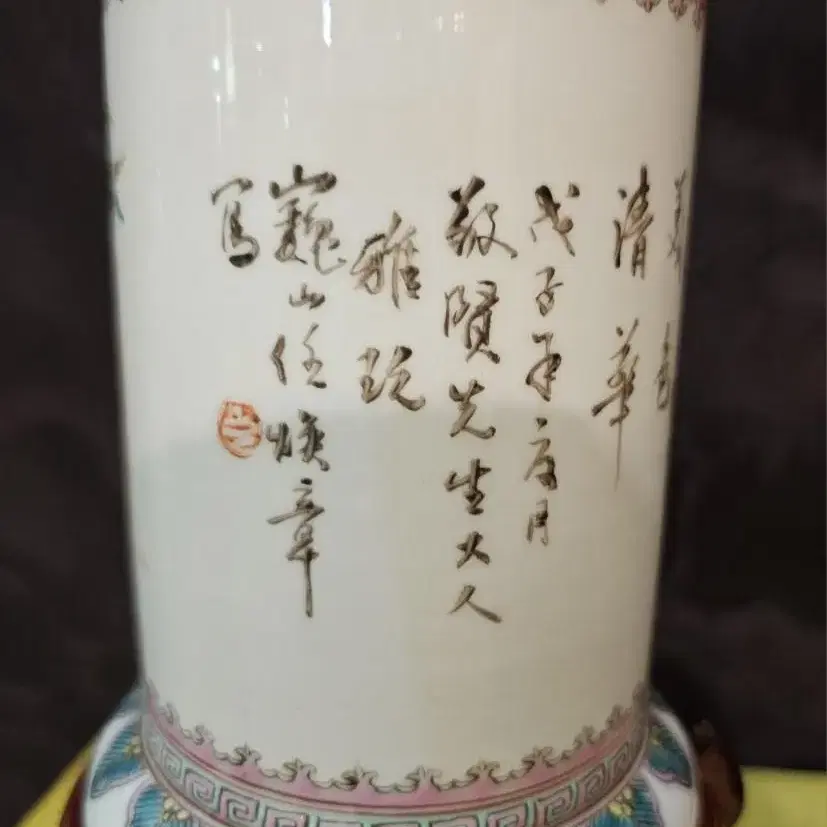 清華
戊子年夏月
敬賢先生大人
雅玩
巍山任煥章
寫